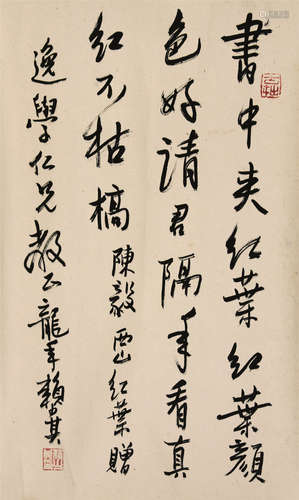 書中夾红葉红葉顏
色好請君隔年看真
红不枯槁陳毅西山红葉贈
逸學仁兄教正龍年賴其